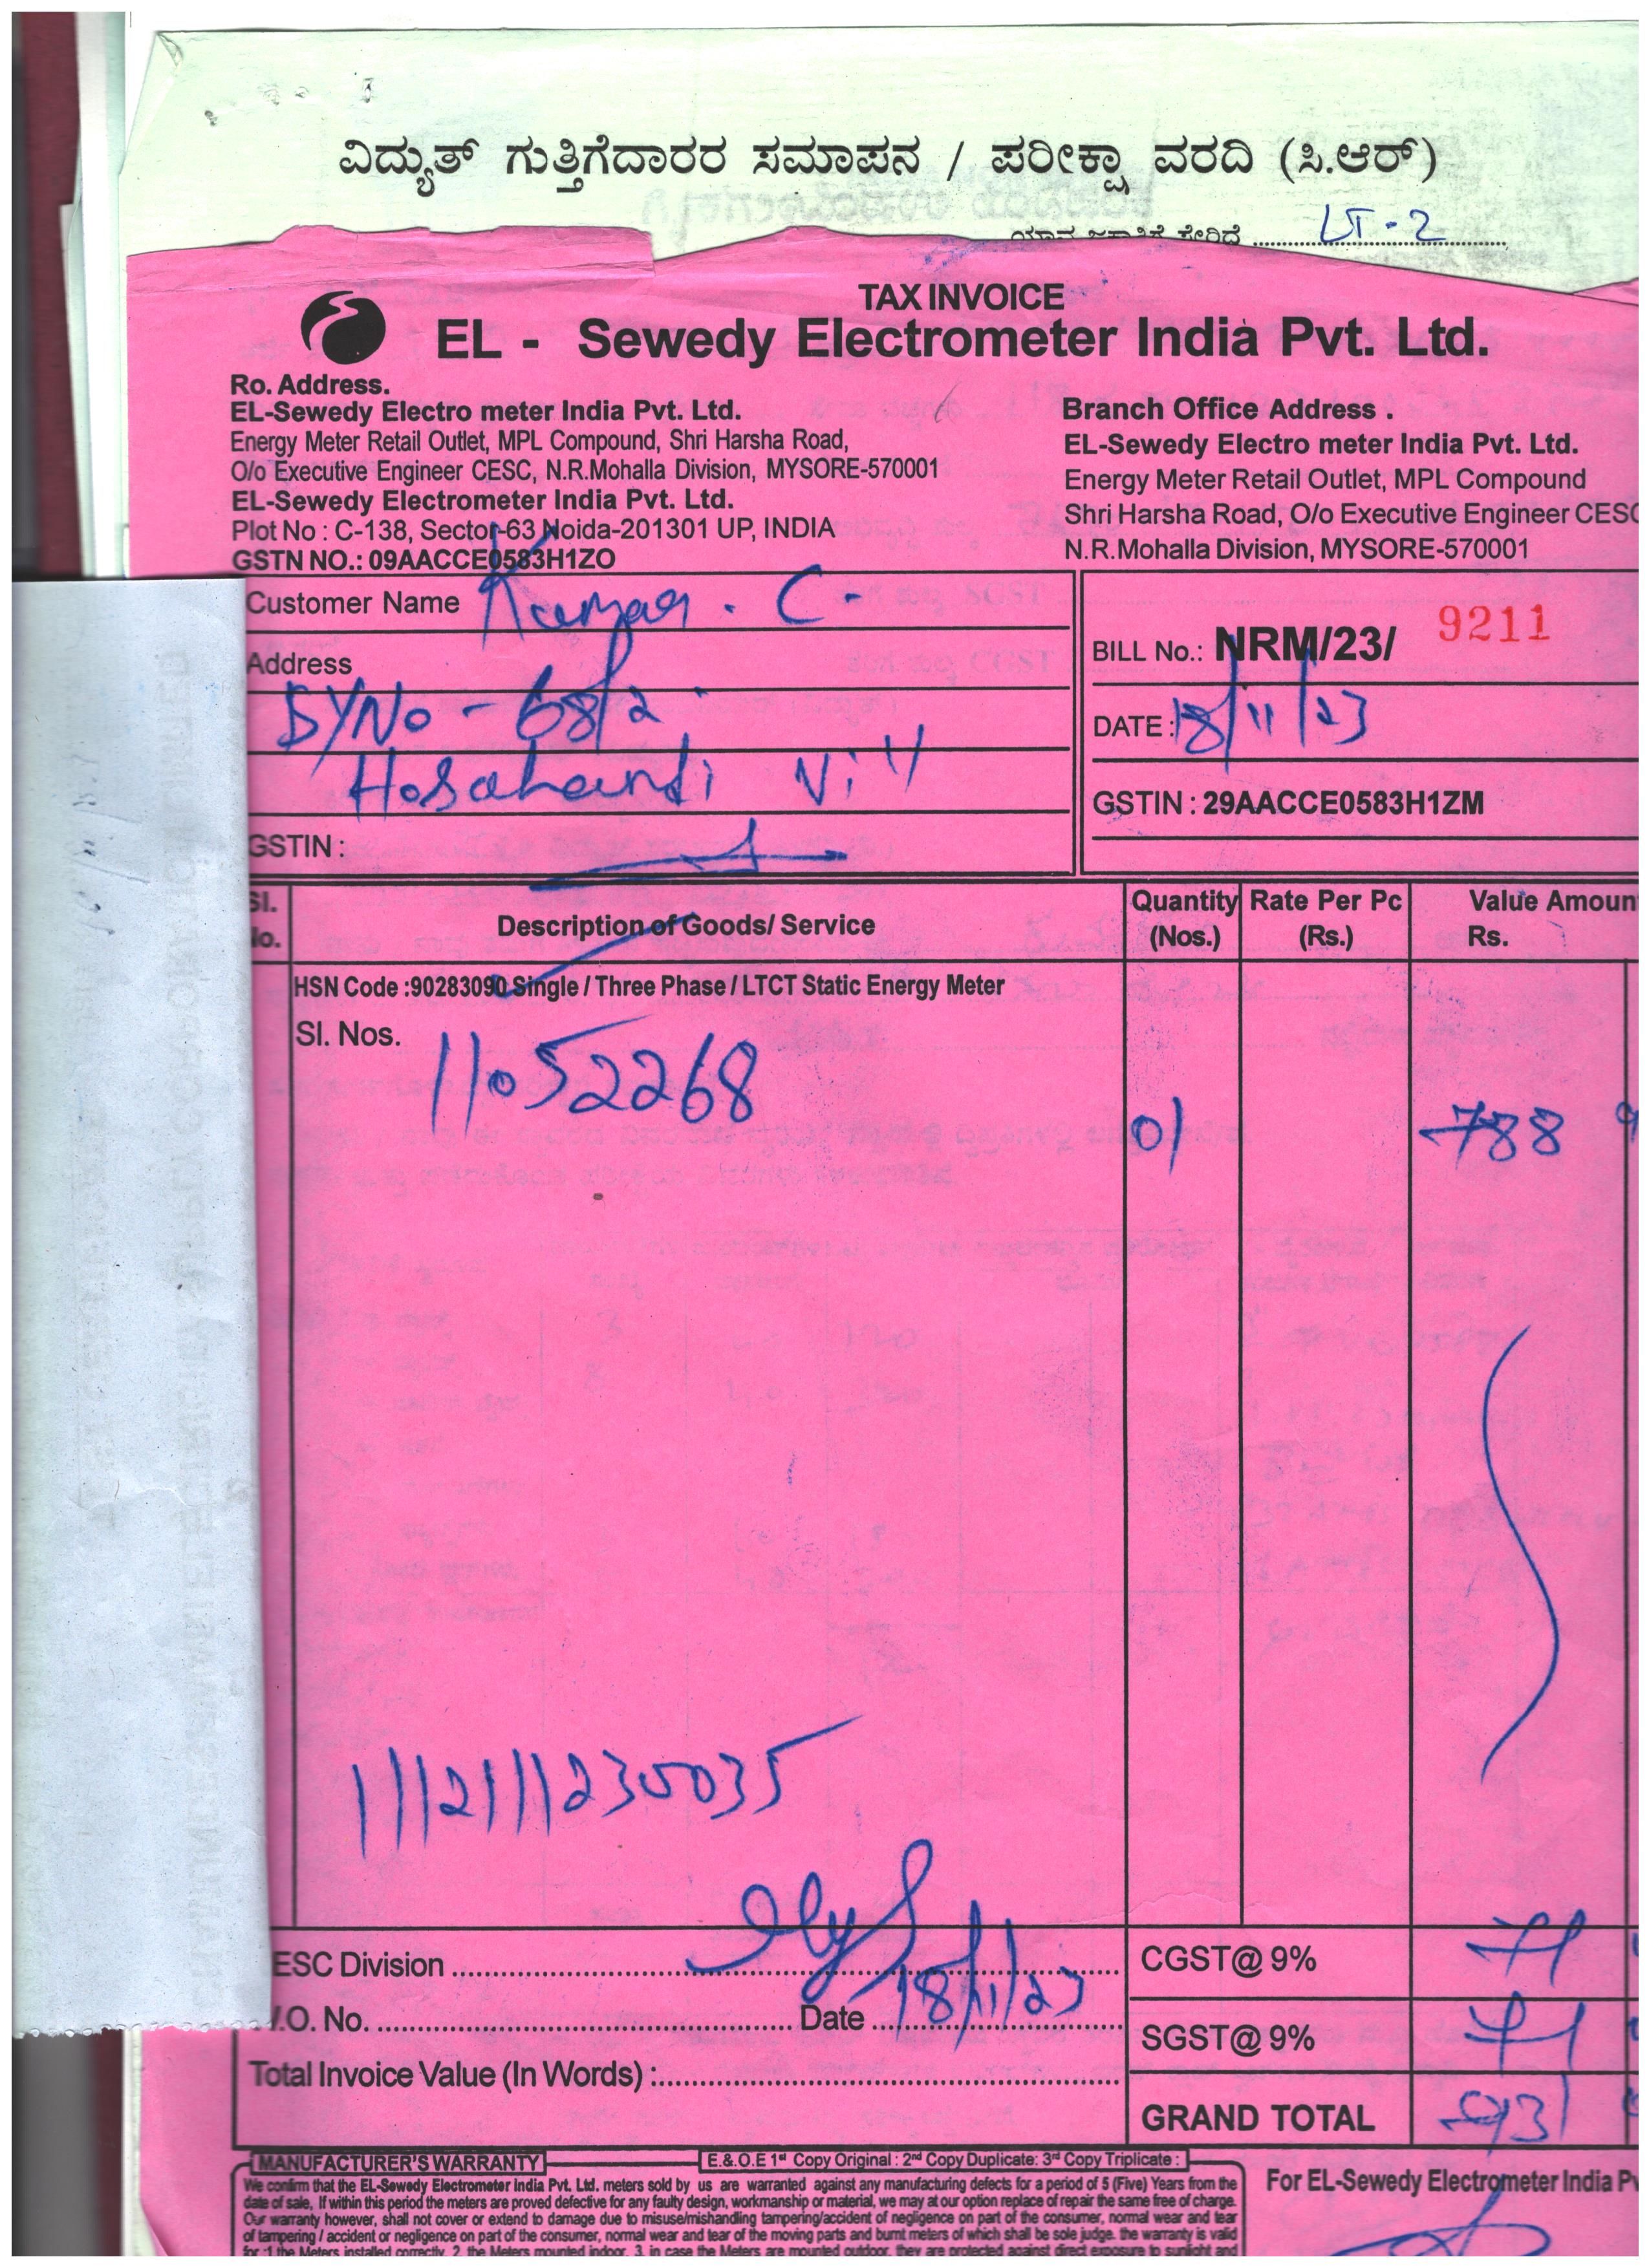 ವಿದ್ಯುತ್ ಗುತ್ತಿಗೆದಾರರ ಸಮಾಪನ / ಪರೀಕ್ಷಾ ವರದಿ (ಸಿ.ಆರ್)
ಯಾವ ಜಕಾತಿಗೆ ಸೇರಿದೆ LT-2
TAX INVOICE
EL - Sewedy Electrometer India Pvt. Ltd.
Ro. Address.
EL-Sewedy Electro meter India Pvt. Ltd.
Energy Meter Retail Outlet, MPL Compound, Shri Harsha Road,
O/o Executive Engineer CESC, N.R.Mohalla Division, MYSORE-570001
EL-Sewedy Electrometer India Pvt. Ltd.
Plot No : C-138, Sector-63 Noida-201301 UP, INDIA
GSTN NO.: 09AACCE0583H1ZO
Branch Office Address .
EL-Sewedy Electro meter India Pvt. Ltd.
Energy Meter Retail Outlet, MPL Compound
Shri Harsha Road, O/o Executive Engineer CESC
N.R.Mohalla Division, MYSORE-570001
Customer Name Kumar. C.
Address
SYNo - 68/2
Hosahundi Vill
GSTIN :
BILL No.: NRM/23/ 9211
DATE : 18/11/23
GSTIN : 29AACCE0583H1ZM
Sl. No. Description of Goods/ Service Quantity (Nos.) Rate Per Pc (Rs.) Value Amoun Rs.
HSN Code :90283090 Single / Three Phase / LTCT Static Energy Meter
Sl. Nos. 11052268 01 788
1112111230035
ESC Division
.O. No. Date 18/11/23
Total Invoice Value (In Words) :
CGST@ 9% 71
SGST@ 9% 71
GRAND TOTAL 931
MANUFACTURER'S WARRANTY
E.&.O.E 1st Copy Original : 2nd Copy Duplicate: 3rd Copy Triplicate :
We confirm that the EL-Sewedy Electrometer India Pvt. Ltd. meters sold by us are warranted against any manufacturing defects for a period of 5 (Five) Years from the
date of sale, If within this period the meters are proved defective for any faulty design, workmanship or material, we may at our option replace of repair the same free of charge.
Our warranty however, shall not cover or extend to damage due to misuse/mishandling tampering/accident of negligence on part of the consumer, normal wear and tear
of tampering / accident or negligence on part of the consumer, normal wear and tear of the moving parts and burnt meters of which shall be sole judge. the warranty is valid
for :1.the Meters installed correctly, 2. the Meters mounted indoor, 3. in case the Meters are mounted outdoor, they are protected against direct exposure to sunlight and
For EL-Sewedy Electrometer India Pv